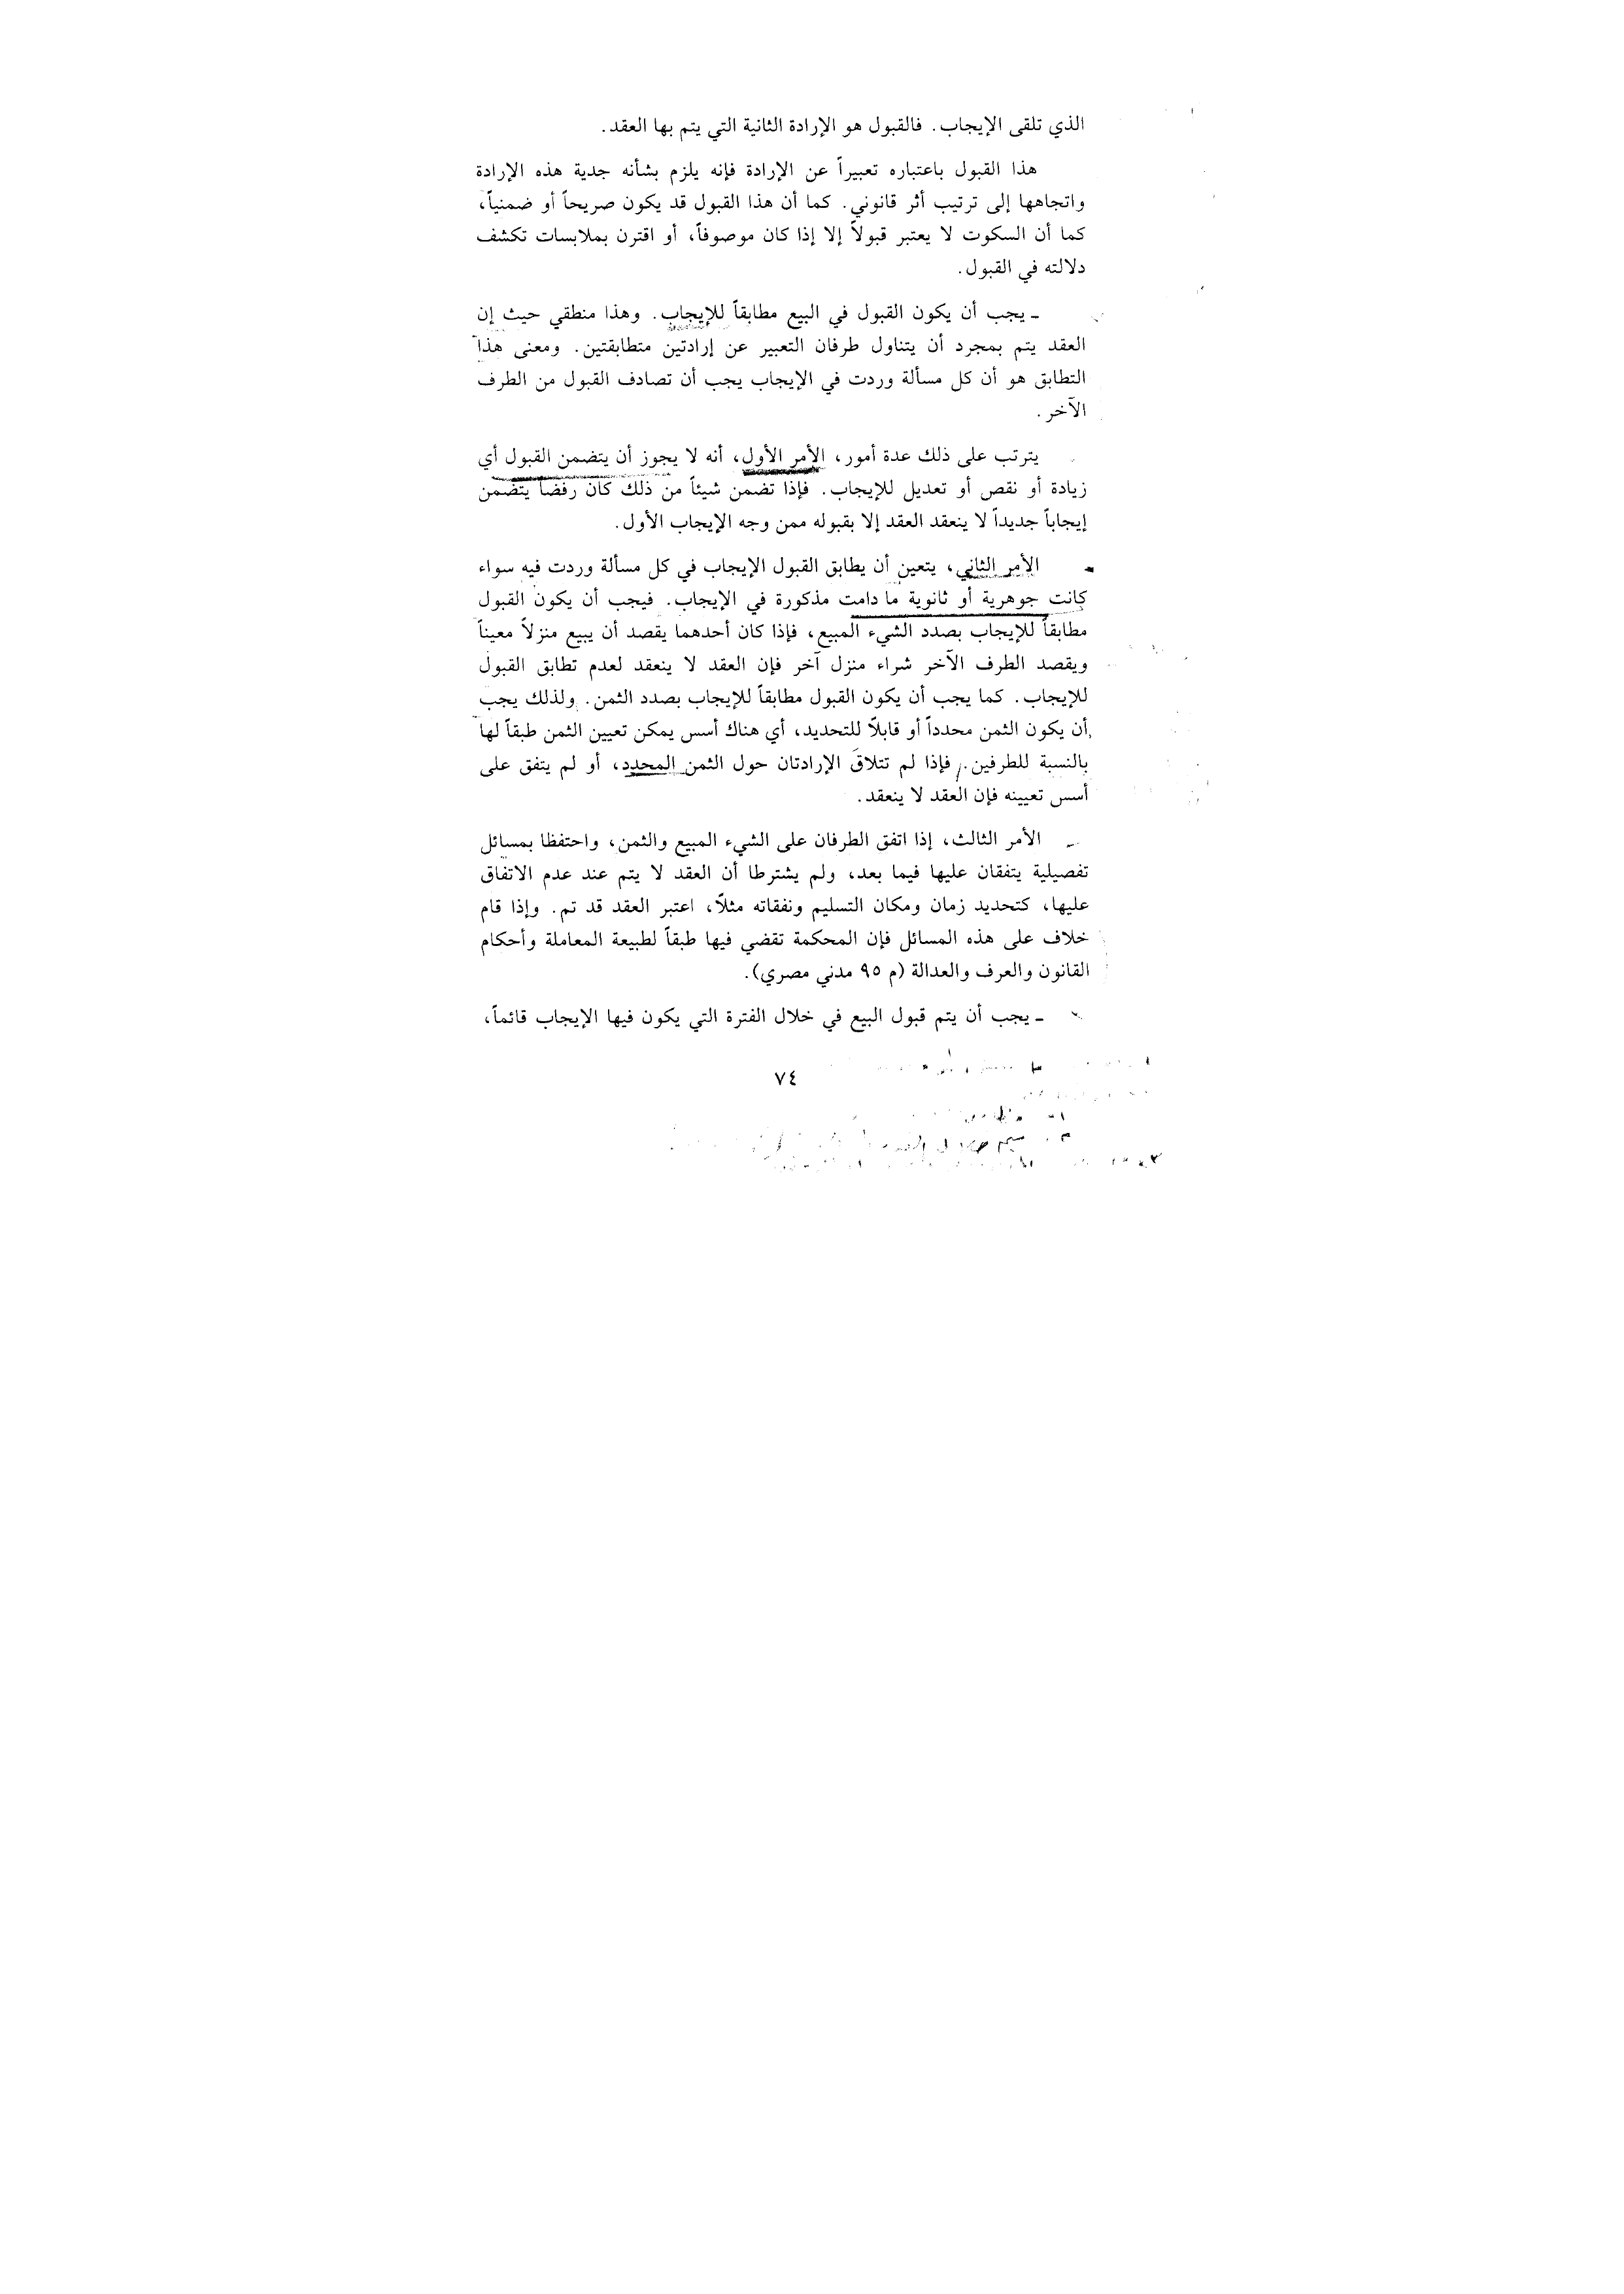 الذي تلقى الإيجاب. فالقبول هو الإرادة الثانية التي يتم بها العقد.
هذا القبول باعتباره تعبيراً عن الإرادة فإنه يلزم بشأنه جدية هذه الإرادة
واتجاهها إلى ترتيب أثر قانوني. كما أن هذا القبول قد يكون صريحاً أو ضمنياً،
كما أن السكوت لا يعتبر قبولاً إلا إذا كان موصوفاً، أو اقترن بملابسات تكشف
دلالته في القبول.
ـ يجب أن يكون القبول في البيع مطابقاً للإيجاب. وهذا منطقي حيث إن
العقد يتم بمجرد أن يتناول طرفان التعبير عن إرادتين متطابقتين. ومعنى هذا
التطابق هو أن كل مسألة وردت في الإيجاب يجب أن تصادف القبول من الطرف
الآخر.
يترتب على ذلك عدة أمور، الأمر الأول، أنه لا يجوز أن يتضمن القبول أي
زيادة أو نقص أو تعديل للإيجاب. فإذا تضمن شيئاً من ذلك كان رفضاً يتضمن
إيجاباً جديداً لا ينعقد العقد إلا بقبوله ممن وجه الإيجاب الأول.
الأمر الثاني، يتعين أن يطابق القبول الإيجاب في كل مسألة وردت فيه سواء
كانت جوهرية أو ثانوية ما دامت مذكورة في الإيجاب. فيجب أن يكون القبول
مطابقاً للإيجاب بصدد الشيء المبيع، فإذا كان أحدهما يقصد أن يبيع منزلاً معيناً
ويقصد الطرف الآخر شراء منزل آخر فإن العقد لا ينعقد لعدم تطابق القبول
للإيجاب. كما يجب أن يكون القبول مطابقاً للإيجاب بصدد الثمن. ولذلك يجب
أن يكون الثمن محدداً أو قابلاً للتحديد، أي هناك أسس يمكن تعيين الثمن طبقاً لها
بالنسبة للطرفين. فإذا لم تتلاقَ الإرادتان حول الثمن المحدد، أو لم يتفق على
أسس تعيينه فإن العقد لا ينعقد.
الأمر الثالث، إذا اتفق الطرفان على الشيء المبيع والثمن، واحتفظا بمسائل
تفصيلية يتفقان عليها فيما بعد، ولم يشترطا أن العقد لا يتم عند عدم الاتفاق
عليها، كتحديد زمان ومكان التسليم ونفقاته مثلاً، اعتبر العقد قد تم. وإذا قام
خلاف على هذه المسائل فإن المحكمة تقضي فيها طبقاً لطبيعة المعاملة وأحكام
القانون والعرف والعدالة (م ٩٥ مدني مصري).
ـ يجب أن يتم قبول البيع في خلال الفترة التي يكون فيها الإيجاب قائماً،
٧٤